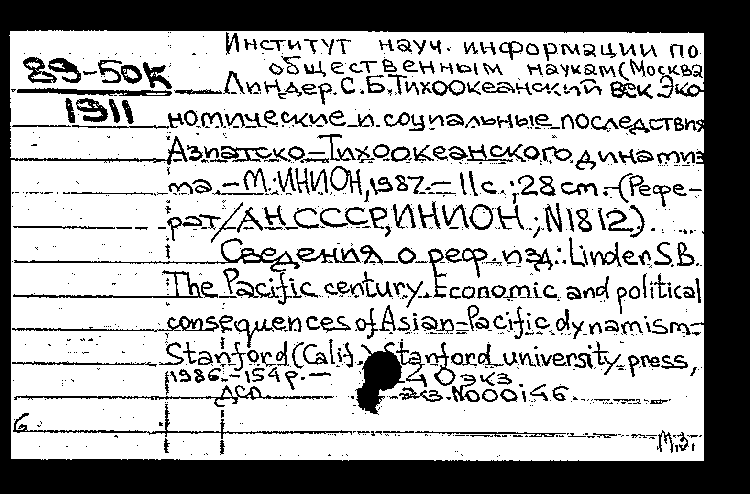 Институт науч. информации по
общественным наукам (Москва
89-50к
Линдер. С.Б. Тихоокеанский век Эко-
1911
номические и социальные последствия
Азиатско-Тихоокеанского динамиз
ма.-М.: ИНИОН, 1987.-11с.; 28cm.-(Рефе-
рат/АН СССР, ИНИОН.; N1812).
Сведения о реф. изд.: Linder S.B.
The Pacific century. Economic and political
consequences of Asian-Pacific dynamism-
Stanford (Calif.) Stanford university press,
1986.-154p.- 40 экз
ДСП. экз. N000146.
6 М.З.